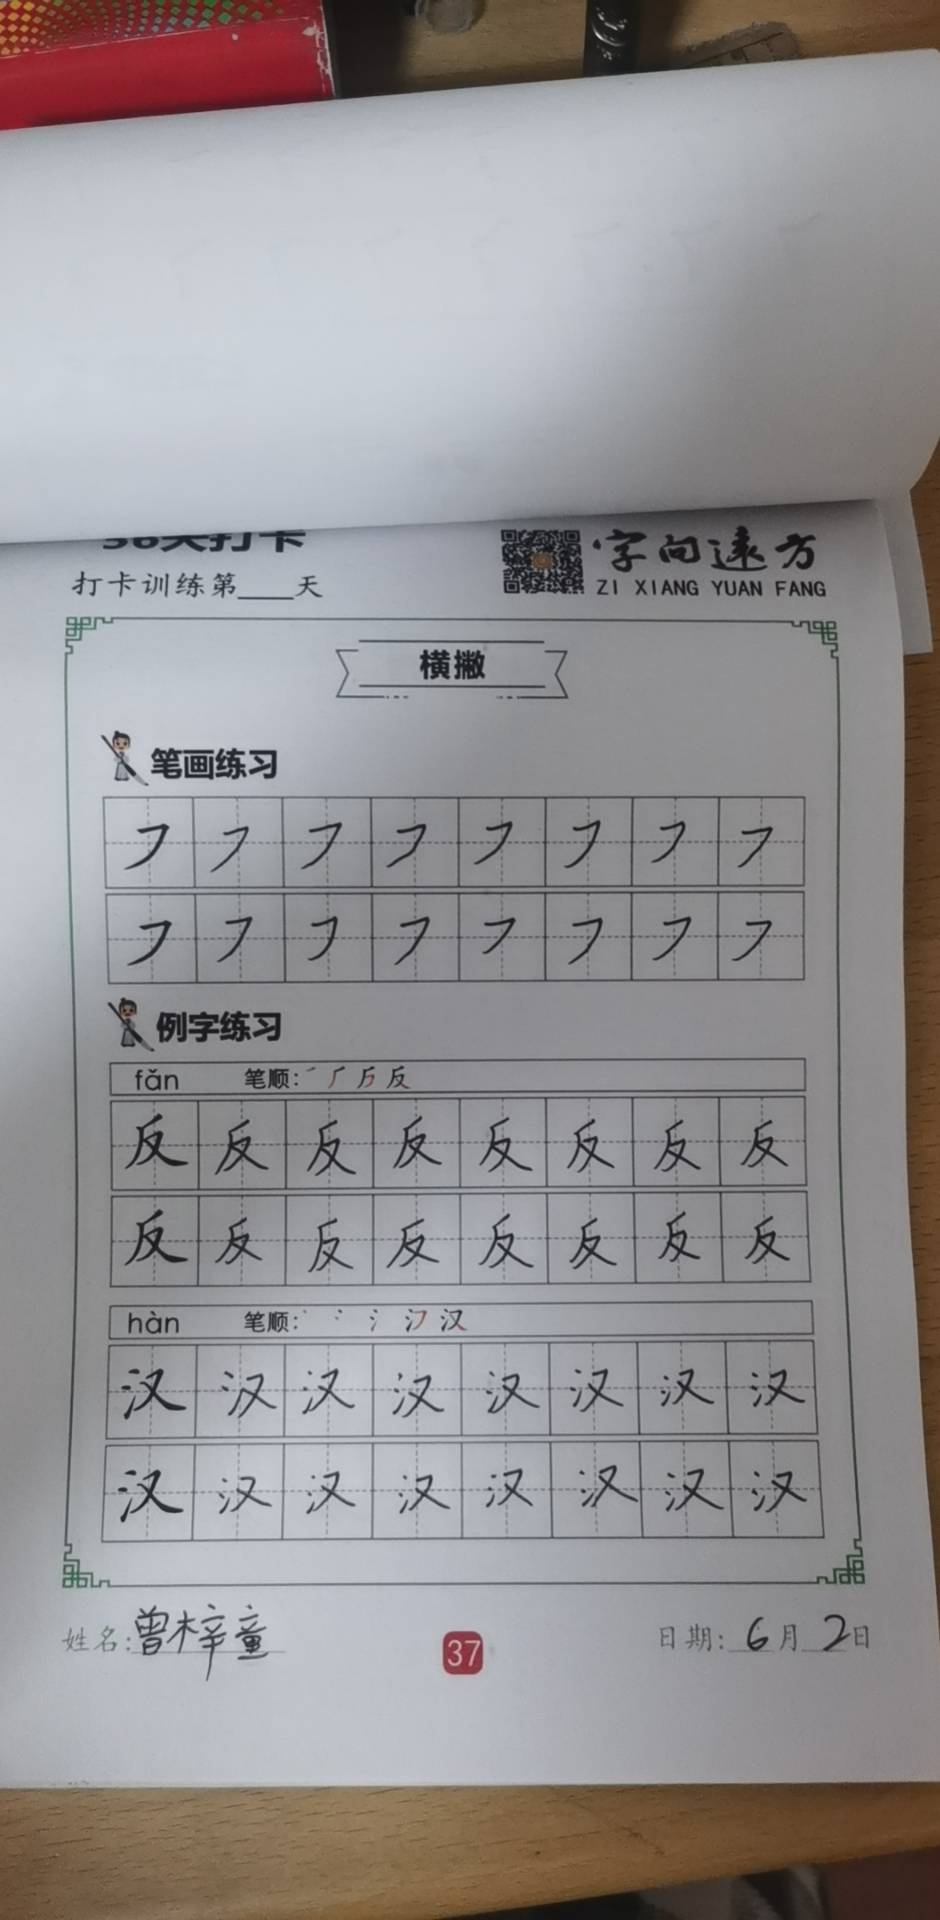 打卡训练第____天
字向远方
ZI XIANG YUAN FANG
横撇
笔画练习
㇇ ㇇ ㇇ ㇇ ㇇ ㇇ ㇇ ㇇
㇇ ㇇ ㇇ ㇇ ㇇ ㇇ ㇇ ㇇
例字练习
fǎn 笔顺: 反
反 反 反 反 反 反 反 反
反 反 反 反 反 反 反 反
hàn 笔顺: 汉
汉 汉 汉 汉 汉 汉 汉 汉
汉 汉 汉 汉 汉 汉 汉 汉
姓名:曾梓童 37 日期:6月2日